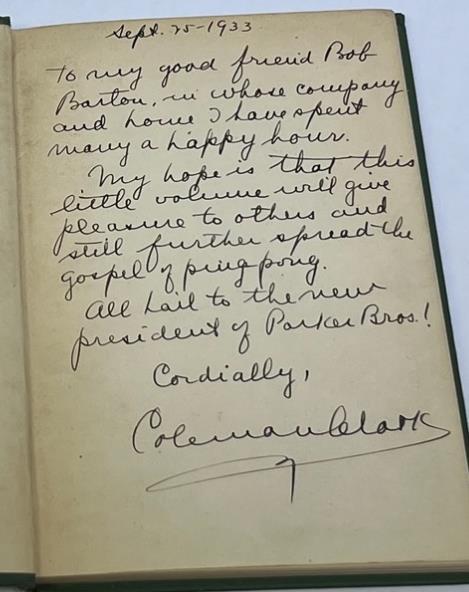 Sept. 25-1933
To my good friend Bob
Barton, in whose company
and home I have spent
many a happy hour.
My hope is that this
little volume will give
pleasure to others and
still further spread the
gospel of ping pong.
All hail to the new
president of Parker Bros.!
Cordially,
Coleman Clark